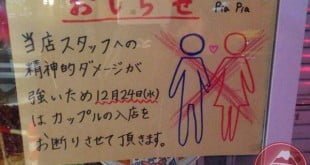 おしらせ
Pia Pia
当店スタッフへの
精神的ダメージが
強いため12月24日(水)
はカップルの入店を
お断りさせて頂きます。